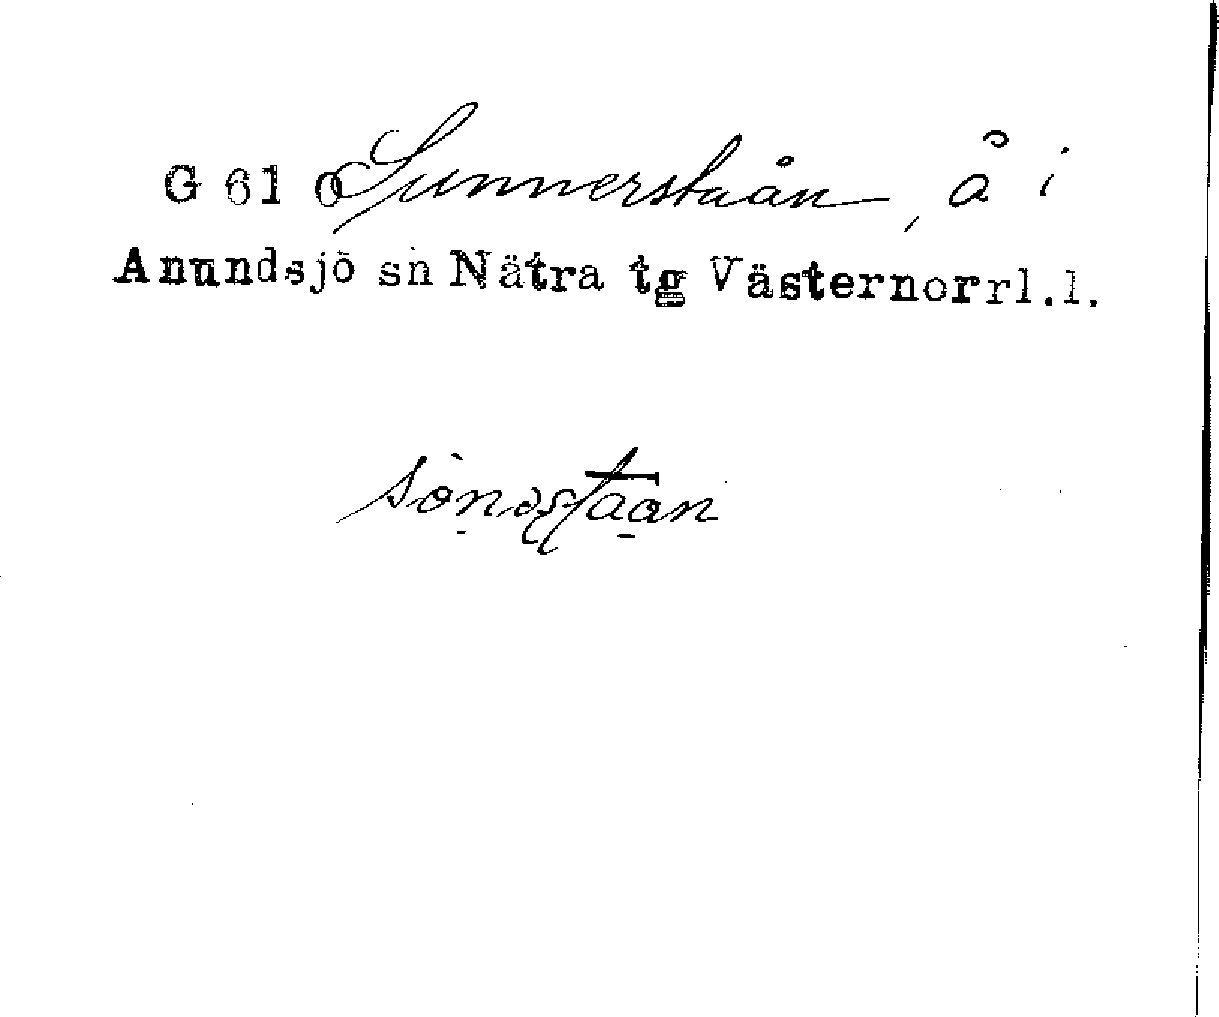 G 61 o Sunnerstaån, å i
Anundsjö sn Nätra tg Västernorrl.l.